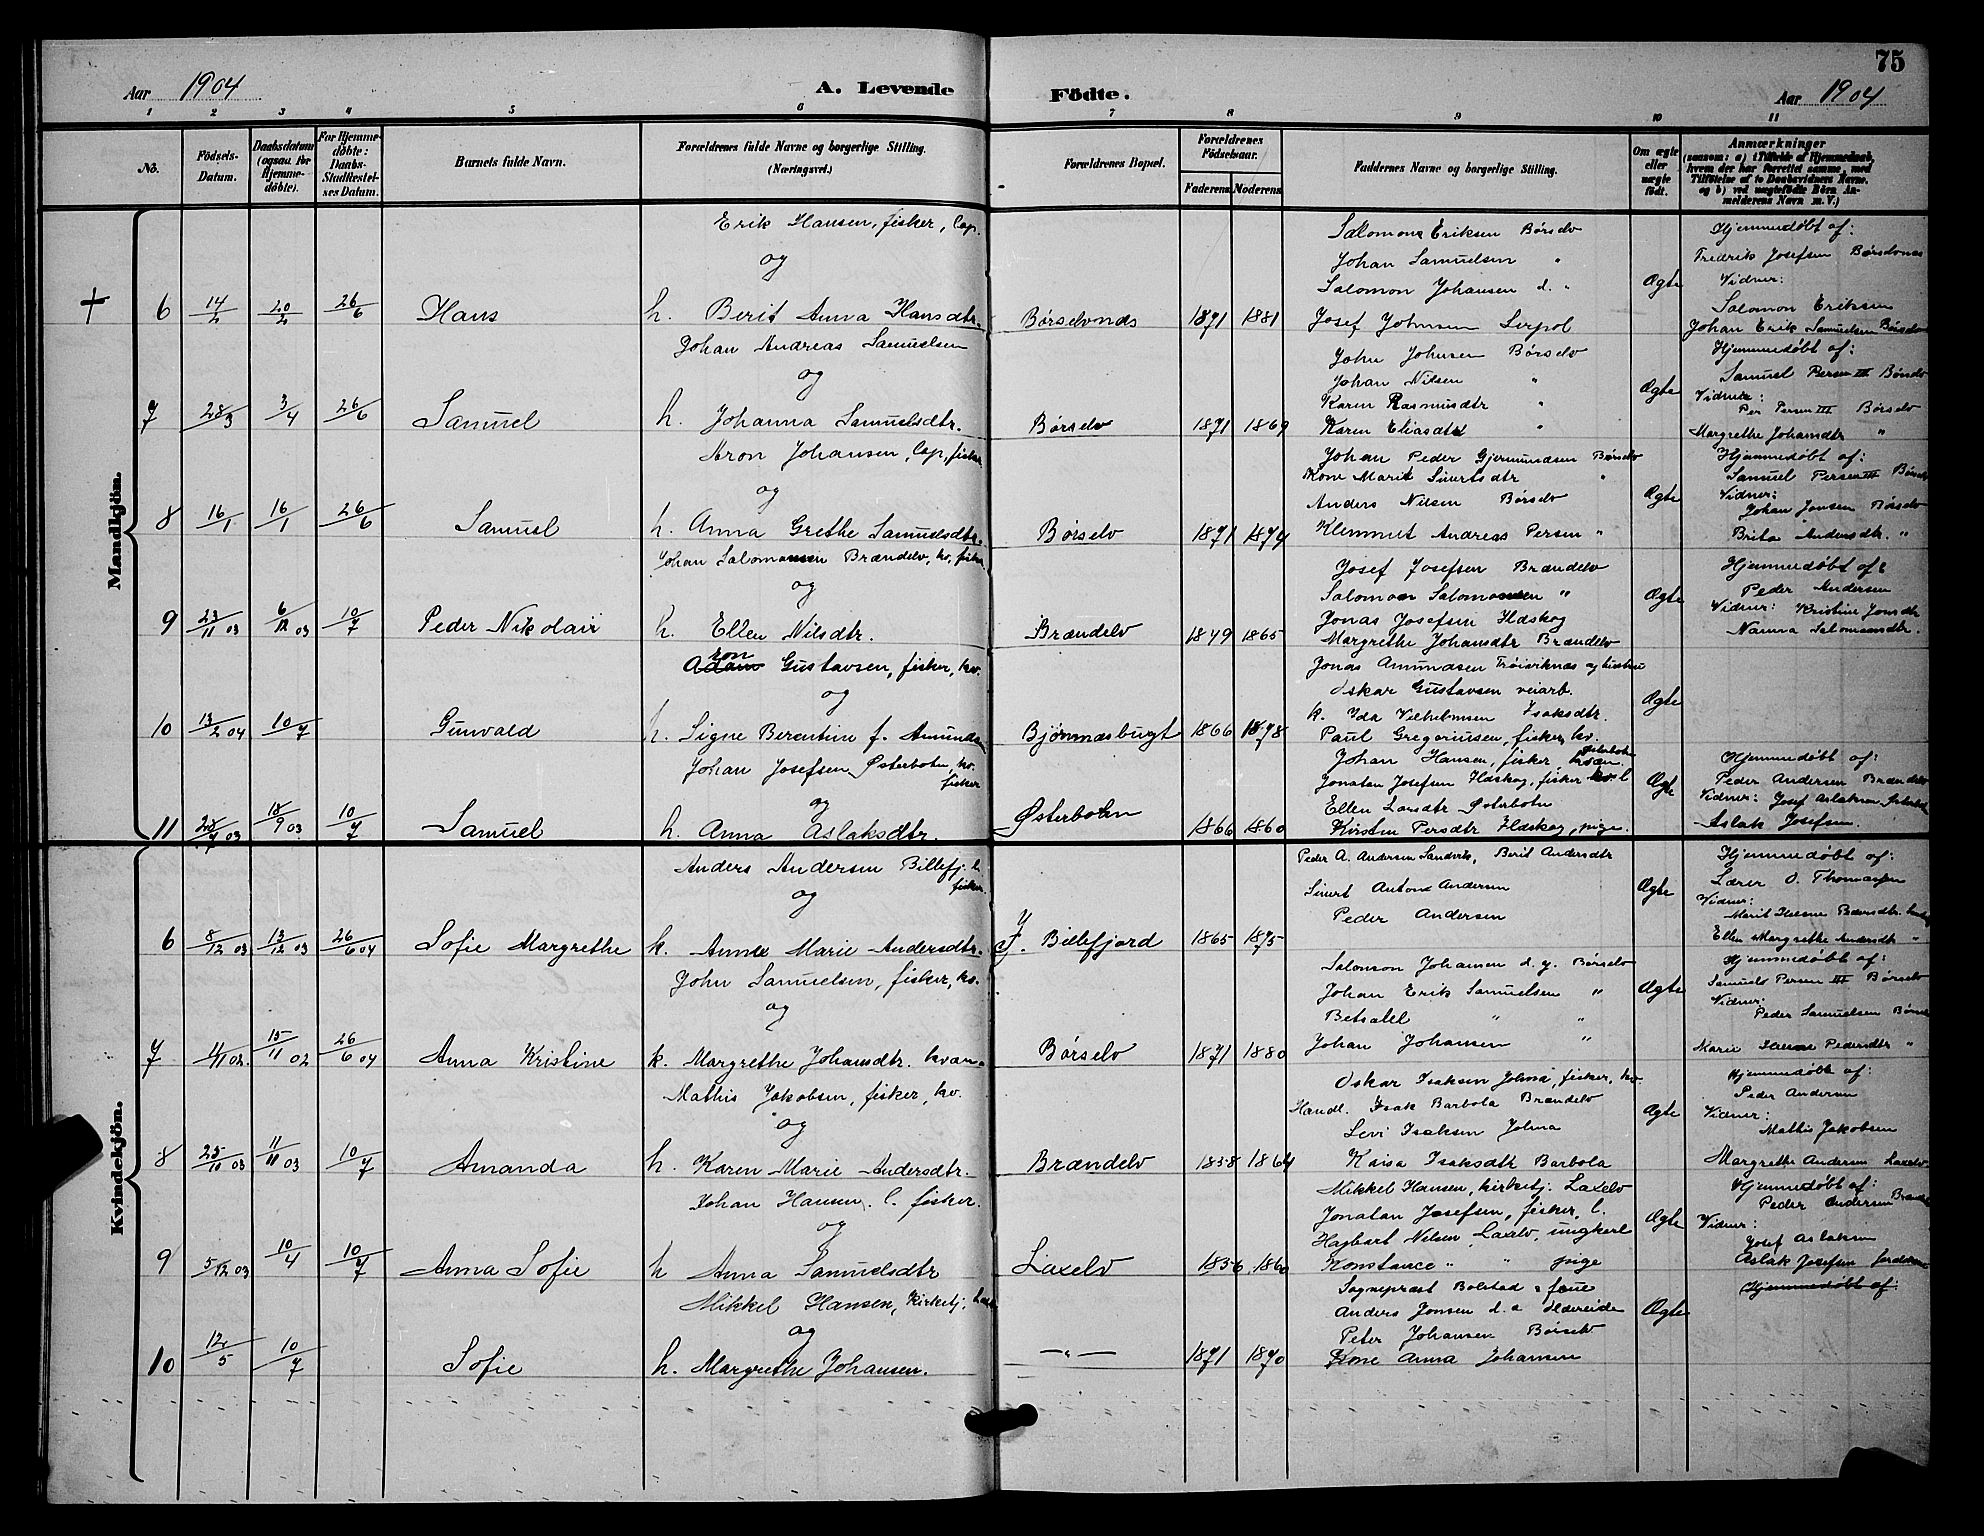 75
Aar 1904
A. Levende
Födte.
Aar 1904
1 2 3 4 5 6 7 8 9 10 11
No.
Födsels-Datum.
Daabsdatum (ogsaa for Hjemme-döbte).
For Hjemme-döbte: Daabs-Stadfæstel-ses Datum.
Barnets fulde Navn.
Forældrenes fulde Navne og borgerlige Stilling. (Næringsvei.)
Forældrenes Bopæl.
Forældrenes Födselsaar.
Faderens Moderens
Faddernes Navne og borgerlige Stilling.
Om ægte eller uægte födt.
Anmærkninger
(saasom: a) i Tilfælde af Hjemmedaab, hvem der har forrettet samme, med Tilföielse af to Daabsvidners Navne, og b) ved uægtefödte Börn An-melderens Navn m. V.)
Mandkjön.
6 14/2 20/2 26/6 Hans
Erik Hansen, fisker, lap.
og
h. Berit Anna Hansdtr.
Børselvnæs 1871 1881
Salomon Eriksen Børselv
Johan Samuelsen "
Salomon Johansen d. "
Josef Johnsen Lerpol
Ægte
Hjemmedøbt af:
Fredrik Josefsen Børselvnæs
Vidner:
Salomon Eriksen
Johan Erik Samuelsen Børselv
7 28/3 3/4 26/6 Samuel
Johan Andreas Samuelsen
og
h. Johanna Samuelsdtr.
Børselv 1871 1869
John Johnsen Børselv
Johan Nilsen "
Karen Rasmusdtr "
Karen Eliasdtr "
Ægte
Hjemmedøbt af:
Samuel Persen III Børselv
Vidner:
Per Persen III Børselv
Margrethe Johansdtr "
8 16/1 16/1 26/6 Samuel
Aron Johansen, lap, fisker
og
h. Anna Grethe Samuelsdtr.
Børselv 1871 1874
Johan Peder Gjermundsen Børselv
Kone Marit Sivertsdtr "
Anders Nilsen Børselv
Klemmet Andreas Persen "
Ægte
Hjemmedøbt af:
Samuel Persen III Børselv
Vidner:
Johan Jonsen Børselv
Brita Andersdtr. "
9 23/11 03 6/12 03 10/7 Peder Nikolair
Johan Salomonsen Brændelv, kv. fisker
og
h. Ellen Nilsdtr.
Brændelv 1849 1865
Josef Josefsen Brændelv
Salomon Salomonsen "
Jonas Josefsen Ildskog
Margrethe Johansdtr Brændelv
Ægte
Hjemmedøbt af:
Peder Andersen
Vidner: Kristine Jonsdtr
Nanna Salomonsdtr.
10 13/2 04 10/7 Gunvald
Aron Gustavsen, fisker, kv.
og
h. Signe Berentine f. Amundsen
Bjørnnæsbugt 1866 1878
Jonas Amundsen Trøiviknæs og hustru
Oskar Gustavsen veiarb.
k. Ida Vilhelmsen Isaksdtr.
Paul Gregoriusen, fisker, kv.
Ægte
11 28/7 03 18/9 03 10/7 Samuel
Johan Josefsen Østerbotn, kv. fisker
og
h. Anna Aslaksdtr.
Østerbotn 1866 1860
Johan Hansen, fisker, Østerbotn
Jonatan Josefsen Ildskog, fisker l
Ellen Larsdtr Østerbotn
Kirsten Persdtr Ildskog, pige.
Ægte
Hjemmedøbt af:
Peder Andersen Brændelv
Vidner: Josef Aslaksen Østerbotn
Aslak Josefsen.
Kvindekjön.
6 8/12 03 13/12 03 26/6 04 Sofie Margrethe
Anders Andersen Billefj. l. fisker
og
k. Anne Marie Andersdtr.
J. Billefjord 1865 1875
Peder A. Andersen Sandvik, Berit Andersdtr
Sivert Anton Andersen
Peder Andersen
Ægte
Hjemmedøbt af:
Lærer O. Thomassen
Vidner:
Ellen Margrethe Andersdtr "
7 4/11 02. 15/11 02 26/6 04 Anna Kristine
John Samuelsen, fisker, kv.
og
k. Margrethe Johansdtr. kvæn.
Børselv 1871 1880
Salomon Johansen d. y. Børselv
Johan Erik Samuelsen "
Betsalel " "
Johan Johansen "
Ægte
Hjemmedøbt af:
Samuel Persen III Børselv
Vidner:
Peder Samuelsen Børselv
Marie Helene Pedersdtr "
8 25/10 03 11/11 03 10/7 Amanda
Mathis Jakobsen, fisker, kv.
og
h. Karen Marie Andersdtr.
Brændelv 1858 1864
Oskar Isaksen Johna, fisker, kv.
Handl. Isak Barbola Brændelv
Levi Isaksen Johna
Kaisa Isaksdtr Barbola
Ægte
Hjemmedøbt af:
Peder Andersen
Vidner:
Mathis Jakobsen
Margrethe Andersen Laxelv
9 5/12 03 10/4 10/7 Anna Sofie
Johan Hansen, l. fisker
og
h Anna Samuelsdtr
Laxelv 1856 1860
Mikkel Hansen, kirketj. Laxelv
Jonatan Josefsen, fisker, l.
Hagbart Nilsen, Laxelv, ungkarl
Konstance " " pige
Ægte
Hjemmedøbt af:
Peder Andersen Brændelv
Vidner:
Josef Aslaksen
Aslak Josefsen
Hjemmedøbt af:
10 12/5 10/7 Sofie
Mikkel Hansen, kirketj,
og
h. Margrethe Johansen.
— " — 1871 1870
Sogneprest Bolstad & frue
Anders Jonsen d. æ Ildereide
Peter Johansen Børselv
Kone Anna Johansen
Ægte